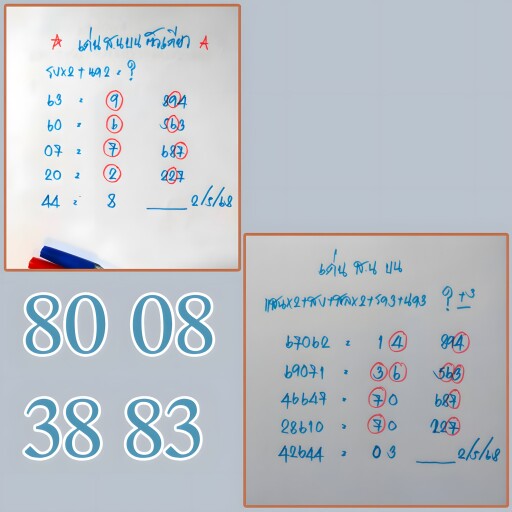 เด่น ส.น บน ตัวเดียว
63 = 9 894
60 = 6 563
07 = 7 687
20 = 2 227
44 = 8 2/5/68
80 08
38 83
เด่น ส.น บน
? +3
67062 = 1 4 894
69071 = 3 6 563
46647 = 7 0 687
28610 = 7 0 227
42644 = 0 3 2/5/68